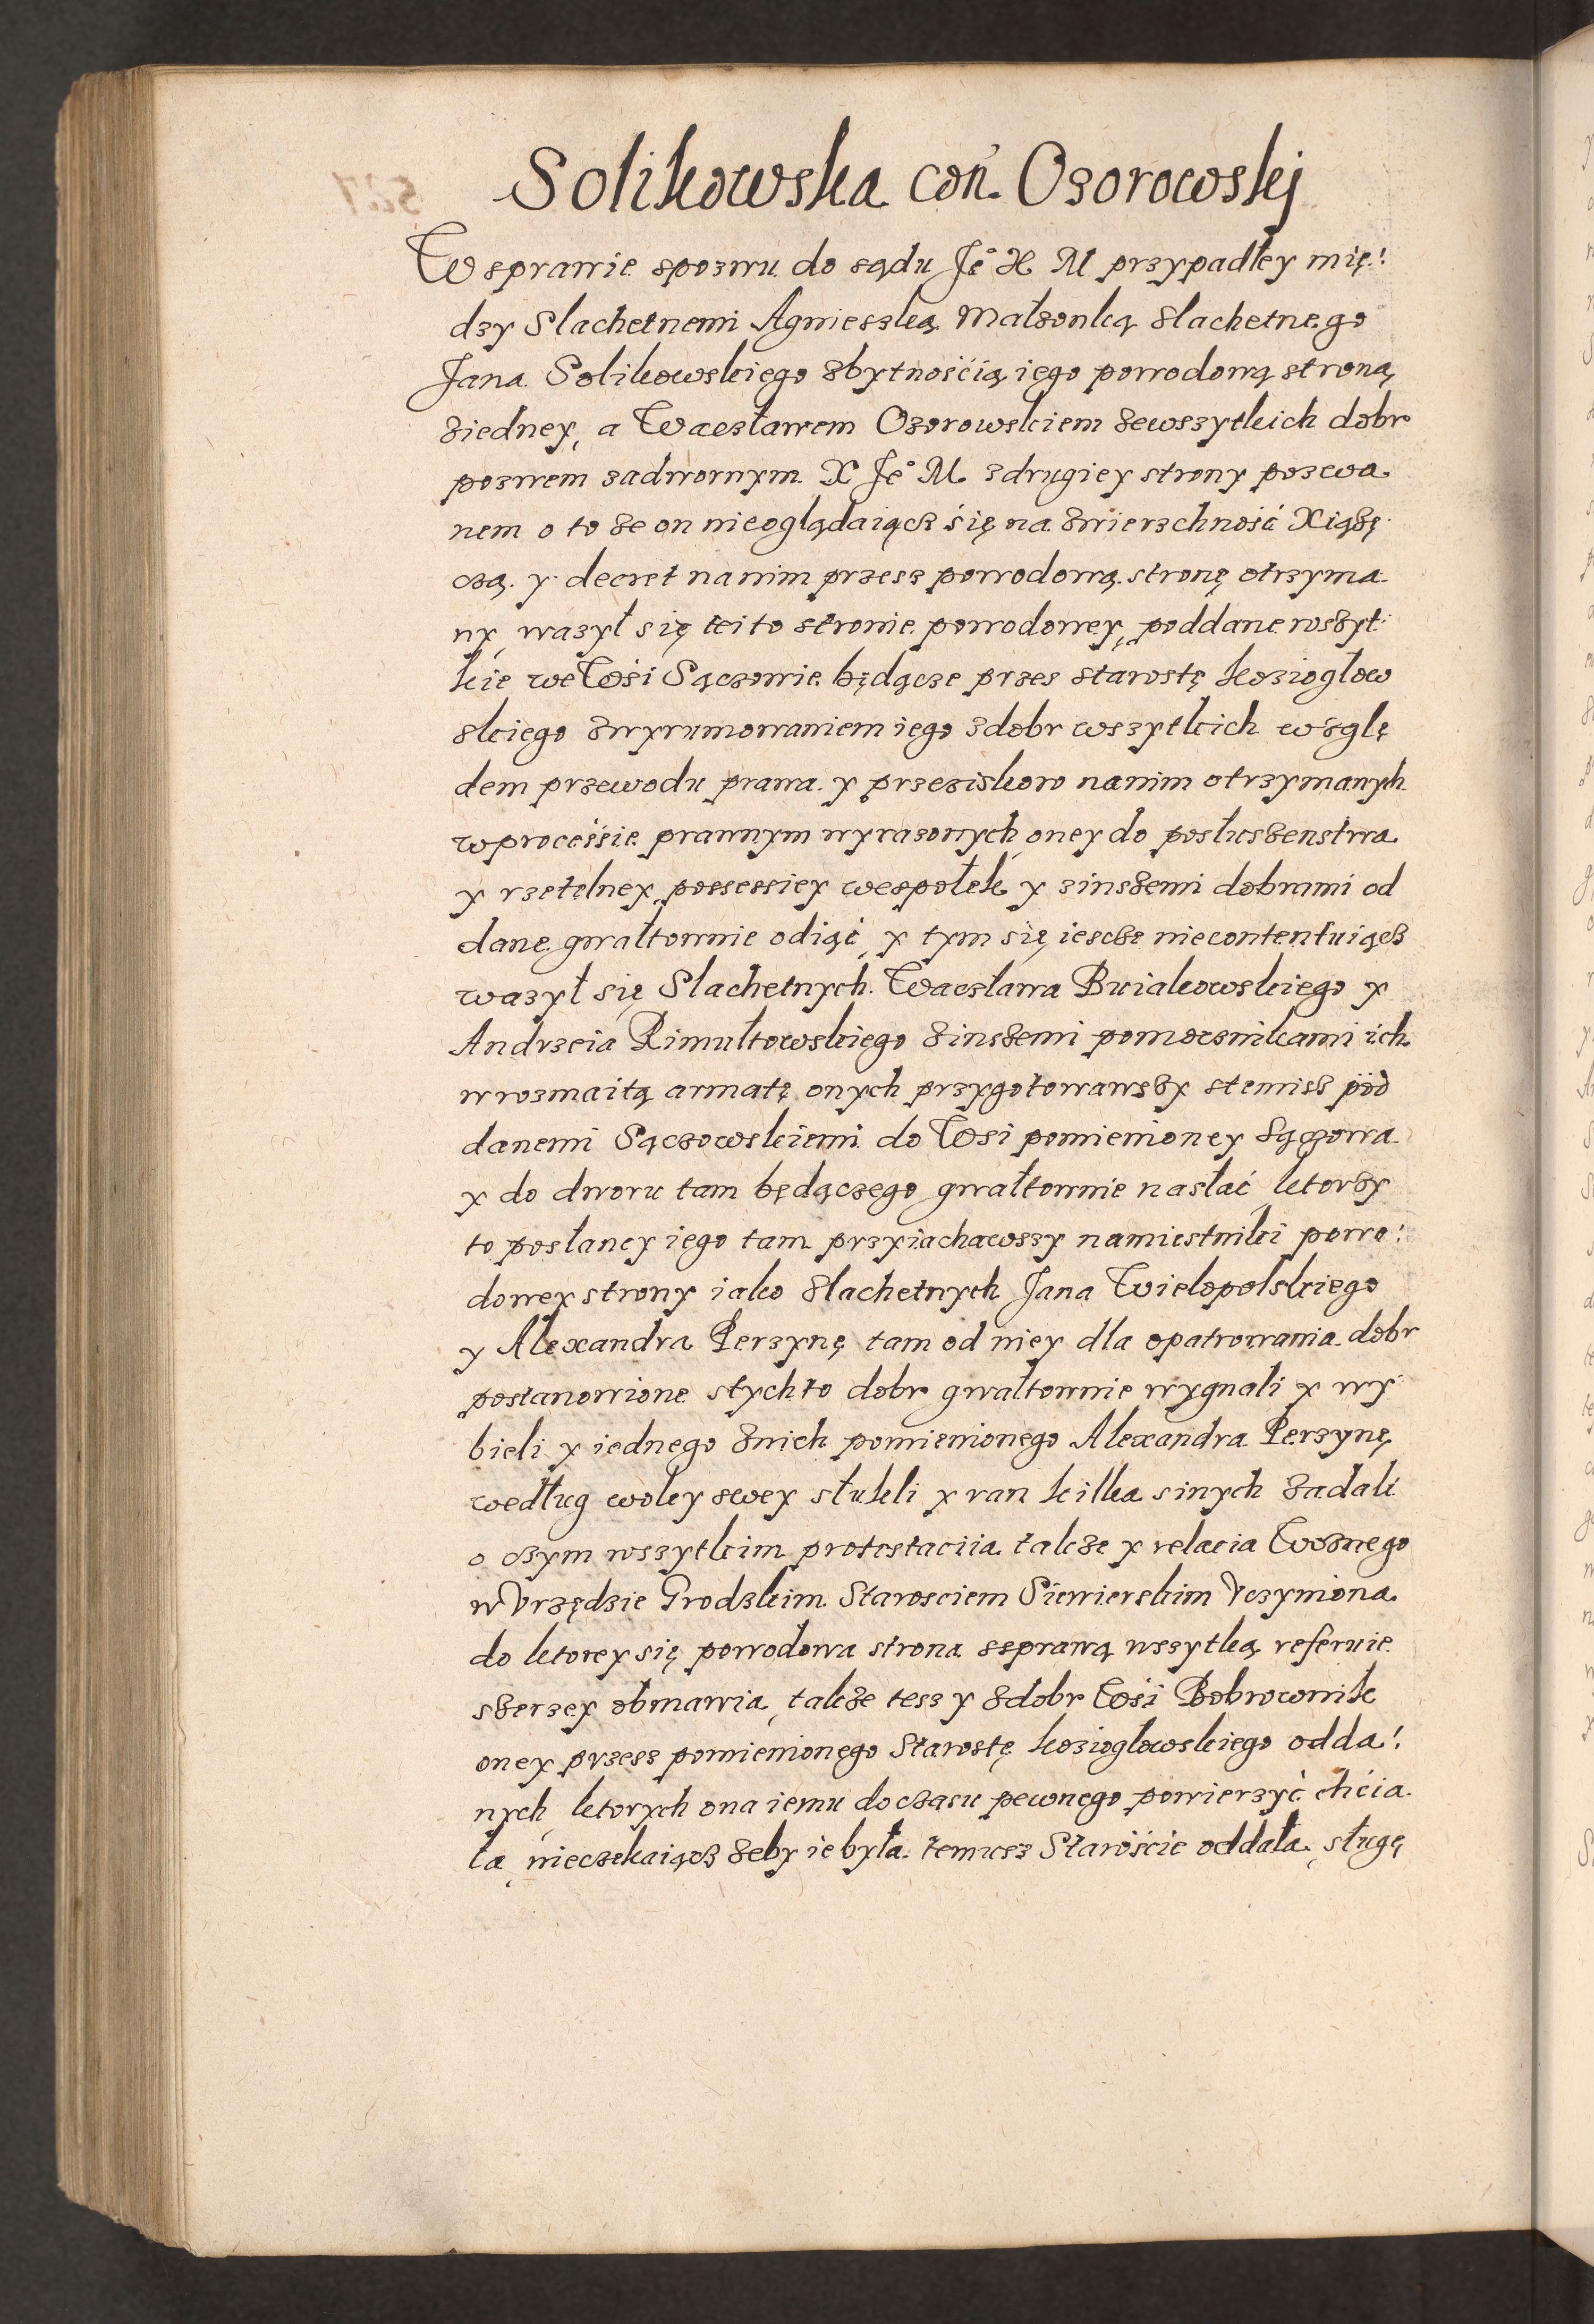 Solikowska coñ. Ozorowskj
W sprawie spozwu do sądu Je° X M przypadłey mię:
dzy Slachetnemi Agnieszką Małzonką slachetnego
Jana Solikowskiego zbytnośćią iego powodową stroną
ziedney, a Wacsławem Ozorowskiem zewszytkich dobr
pozwem zadwornym X Je° M zdrugiey strony pozwa
nem o to że on nieoglądaiącz się na zwierzchność Xiążę
czą y decret nanim przesz powodową stronę otrzyma
ny, wazył się tei to stronie powodowey, poddane wszyt
kie we Wsi Sączowie będącze przes starostę kozioglow
skiego zwyrumowaniem iego zdobr wszytkich wzglę
dem przewodu prawa y przeziskow nanim otrzymanych
wprocessie prawnym wyrazonych oney do posłuszenstwa
y rzetelney possessiey wespołek y zinszemi dobrami od
dane gwałtownie odiąć, y tym się iescze niecontentuiącz
wazył się Slachetnych Wacsława Buiakowskiego y
Andrzeia Rimułtowskiego zinszemi pomocznikami ich
wrozmaitą armatę onych przygotowawszy stemisz pod
danemi Sączowskiemi do Wsi pomienioney Sączowa
y do dworu tam będączego gwałtownie nasłać ktorzy
to posłancy iego tam przyiachawszy namiestniki powo:
dowey strony iako slachetnych Jana Wielopolskiego
y Alexandra Perzynę tam od niey dla opatrowania dobr
postanowione stychto dobr gwałtownie wygnali y wy
bieli y iednego znich pomienionego Alexandra Perzynę
według woley swey stukli y ran kilka sinych zadali
o czym wszytkim protestaciia takze y relacia Woznego
w Vrzędzie Grodzkim Starosciem Siewierskim Vczyniona
do ktorey się powodowa strona ssprawą wszytką referuie
szerzey obmawia, takze tesz y zdobr Wsi Bobrowonik
oney przesz pomienionego Starostę kozioglowskiego odda:
nych, ktorych ona iemu doczasu pewnego powierzyć chćia
ła, nieczekaiącz zeby ie była temusz Starośćie oddała, sługę